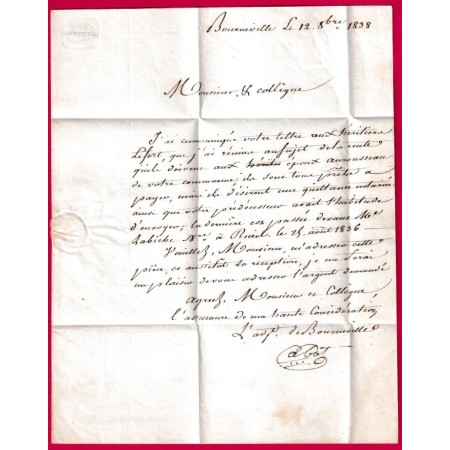 Bourneville Le 12 8bre 1838
Monsieur & collègue
J'ai communiqué votre lettre aux héritiers
Lefort, que j'ai réunis au sujet de la route
qu'ils doivent aux héritiers époux aurousseau
de votre commune, ils sont tous prêts a
payer, mais ils désirent une quittance notariée
ainsi que votre prédécesseur avait l'habitude
d'envoyer, la dernière est passée devant Me
Labiche Nre à Rueil le 25 août 1836
Veuillez, Monsieur, m'adresser cette
pièce, et aussitôt sa réception, je me ferai
un plaisir de vous adresser l'argent demandé
agréez Monsieur et Collègue
l'assurance de ma haute Considération,
L'adj. de Bourneville